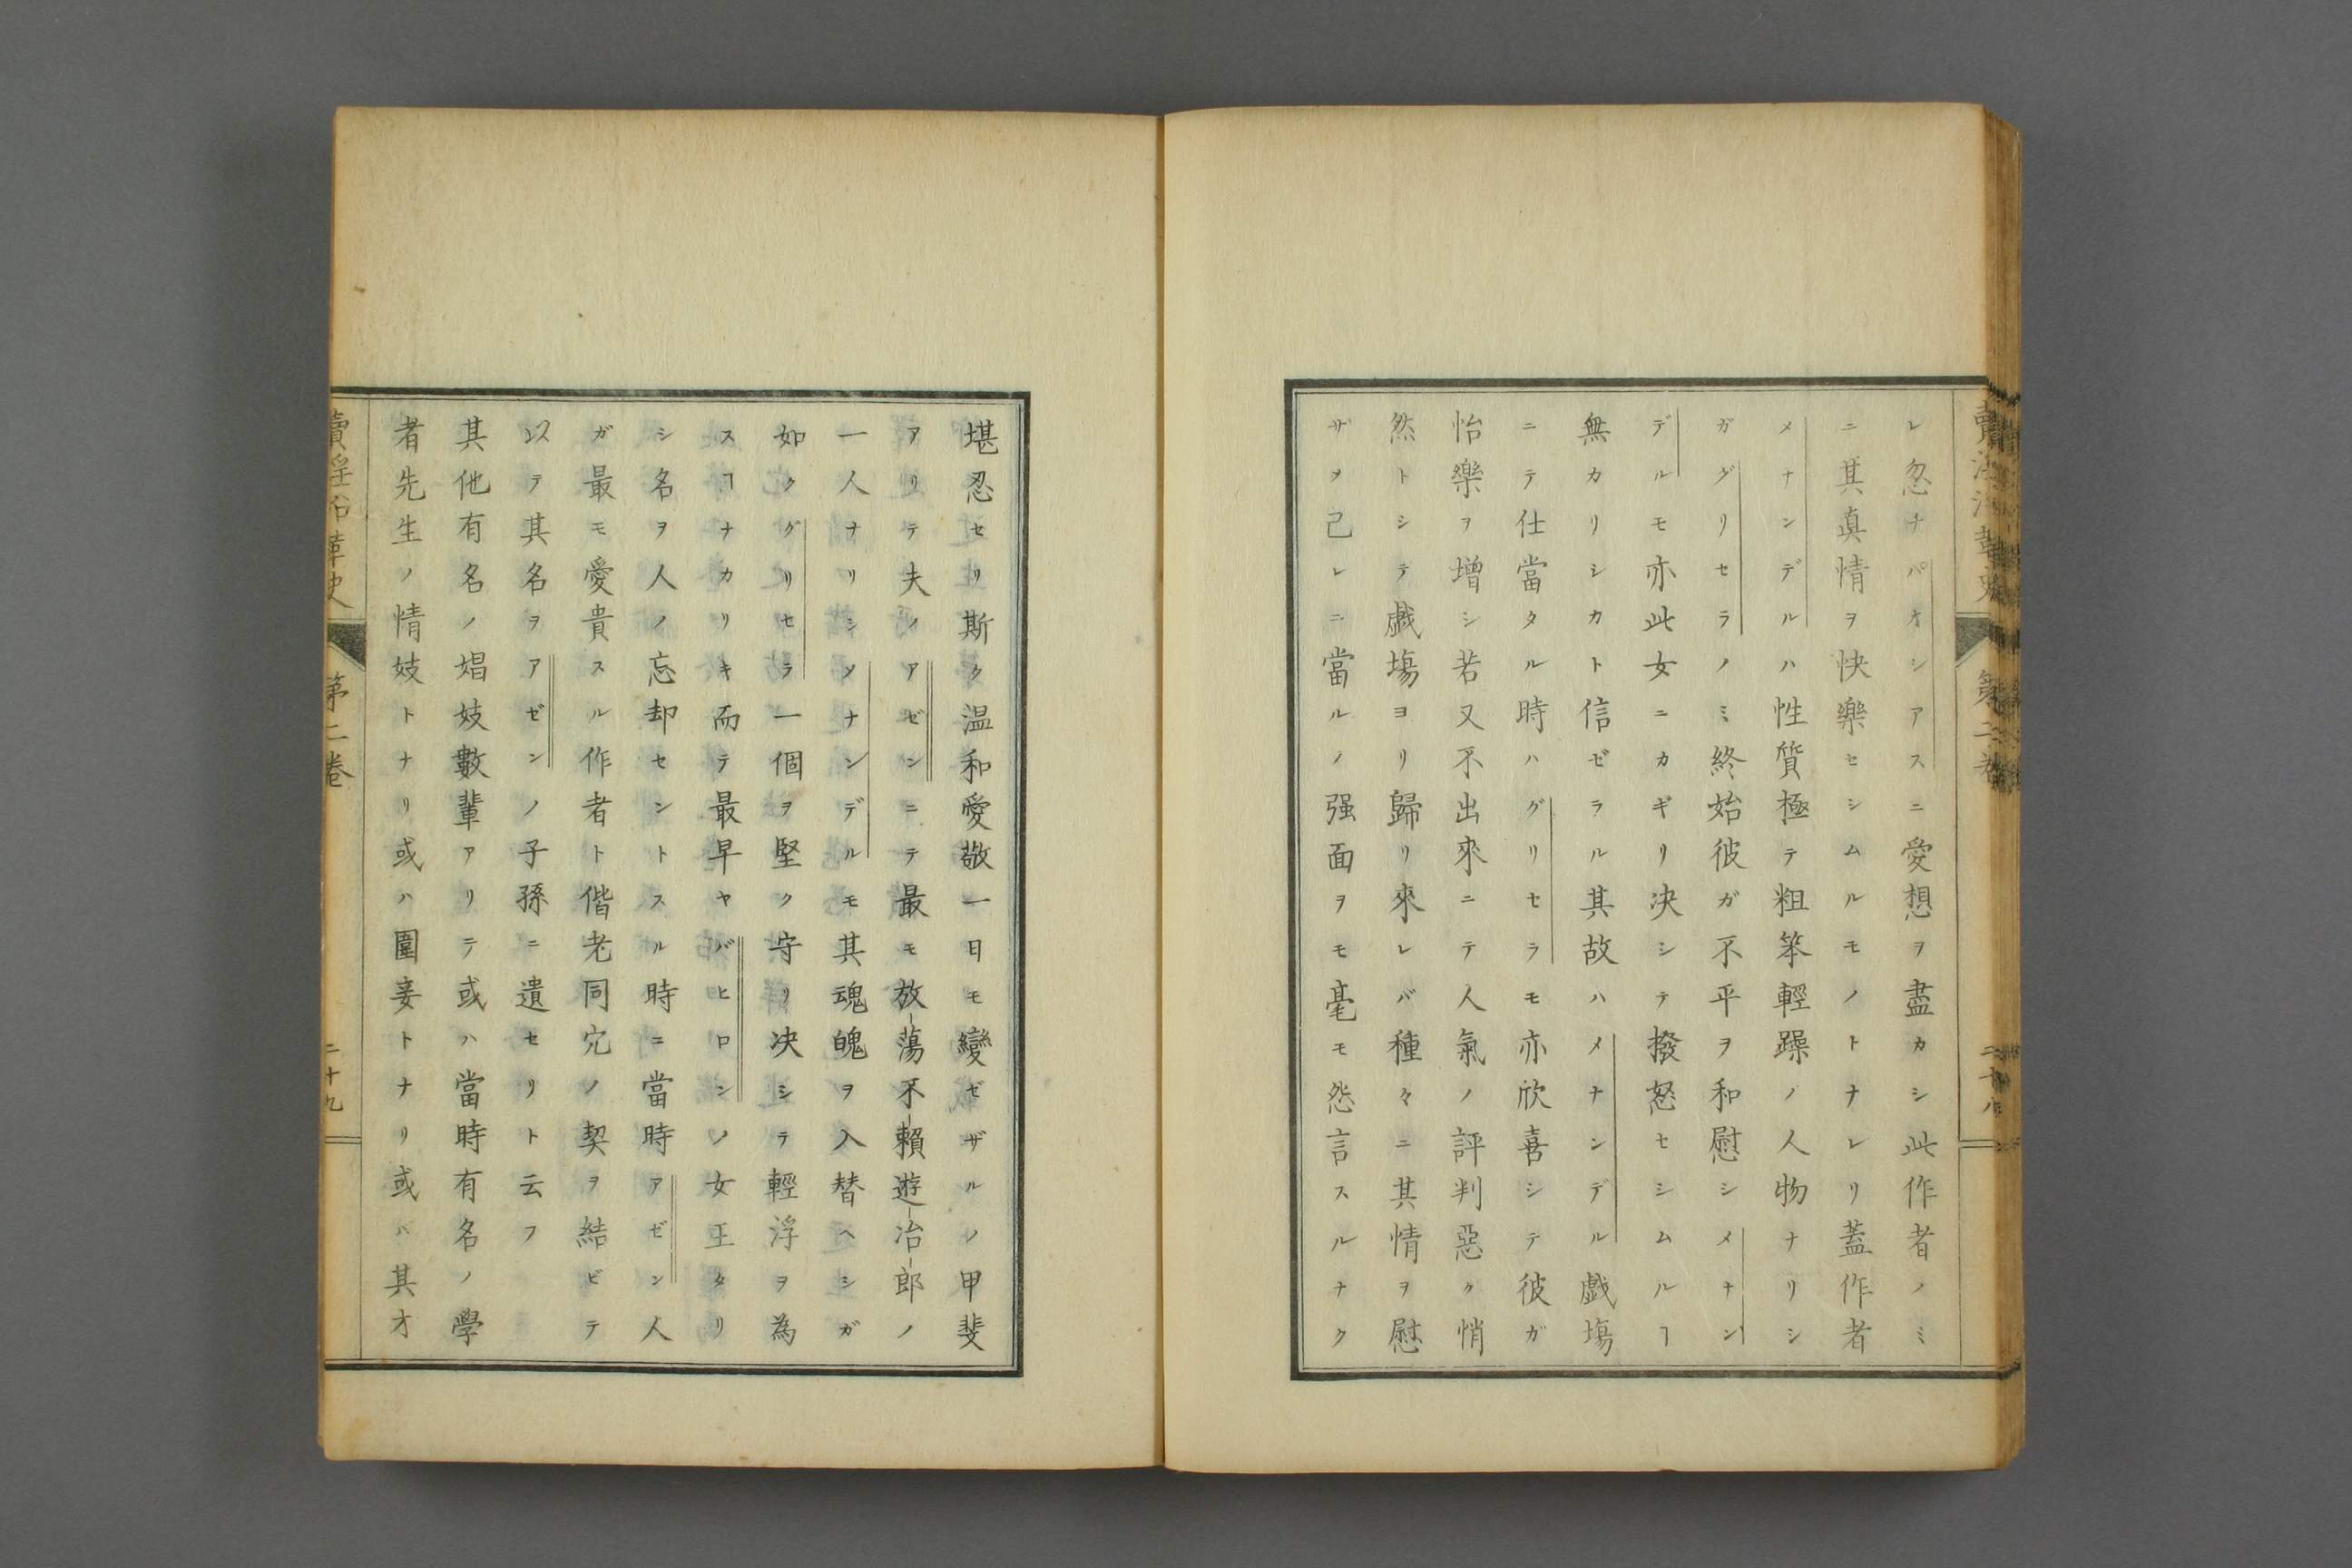 レ忽チパオシアスニ愛想ヲ盡カシ此作者ノミ
ニ其真情ヲ快樂セシムルモノトナレリ蓋作者
メナンデルハ性質極テ粗笨輕躁ノ人物ナリシ
ガグリセラノミ終始彼ガ不平ヲ和慰シメナン
デルモ亦此女ニカギリ决シテ撥怒セシムルヿ
無カリシカト信ゼラル其故ハメナンデル戯塲
ニテ仕當タル時ハグリセラモ亦欣喜シテ彼ガ
怡樂ヲ增シ若又不出來ニテ人氣ノ評判惡ク悄
然トシテ戯塲ヨリ歸リ來レバ種々ニ其情ヲ慰
サメ己レニ當ルノ强面ヲモ毫モ怨言スルナク
堪忍セリ斯ク温和愛敬一日モ變ゼザルノ甲斐
アリテ夫ノアゼンニテ最モ放蕩不賴遊冶郎ノ
一人ナリシメナンデルモ其魂魄ヲ入替ヘシガ
如クグリセラ一個ヲ堅ク守リ决シテ輕浮ヲ為
スヿナカリキ而テ最早ヤバヒロンノ女王タリ
シ名ヲ人ノ忘却セントスル時ニ當時アゼン人
ガ最モ愛貴スル作者ト偕老同穴ノ契ヲ結ビテ
以テ其名ヲアゼンノ子孫ニ遺セリト云フ
其他有名ノ娼妓數輩アリテ或ハ當時有名ノ學
者先生ノ情妓トナリ或ハ圍妾トナリ或ハ其才
賣淫沿革史 第二卷 二十九